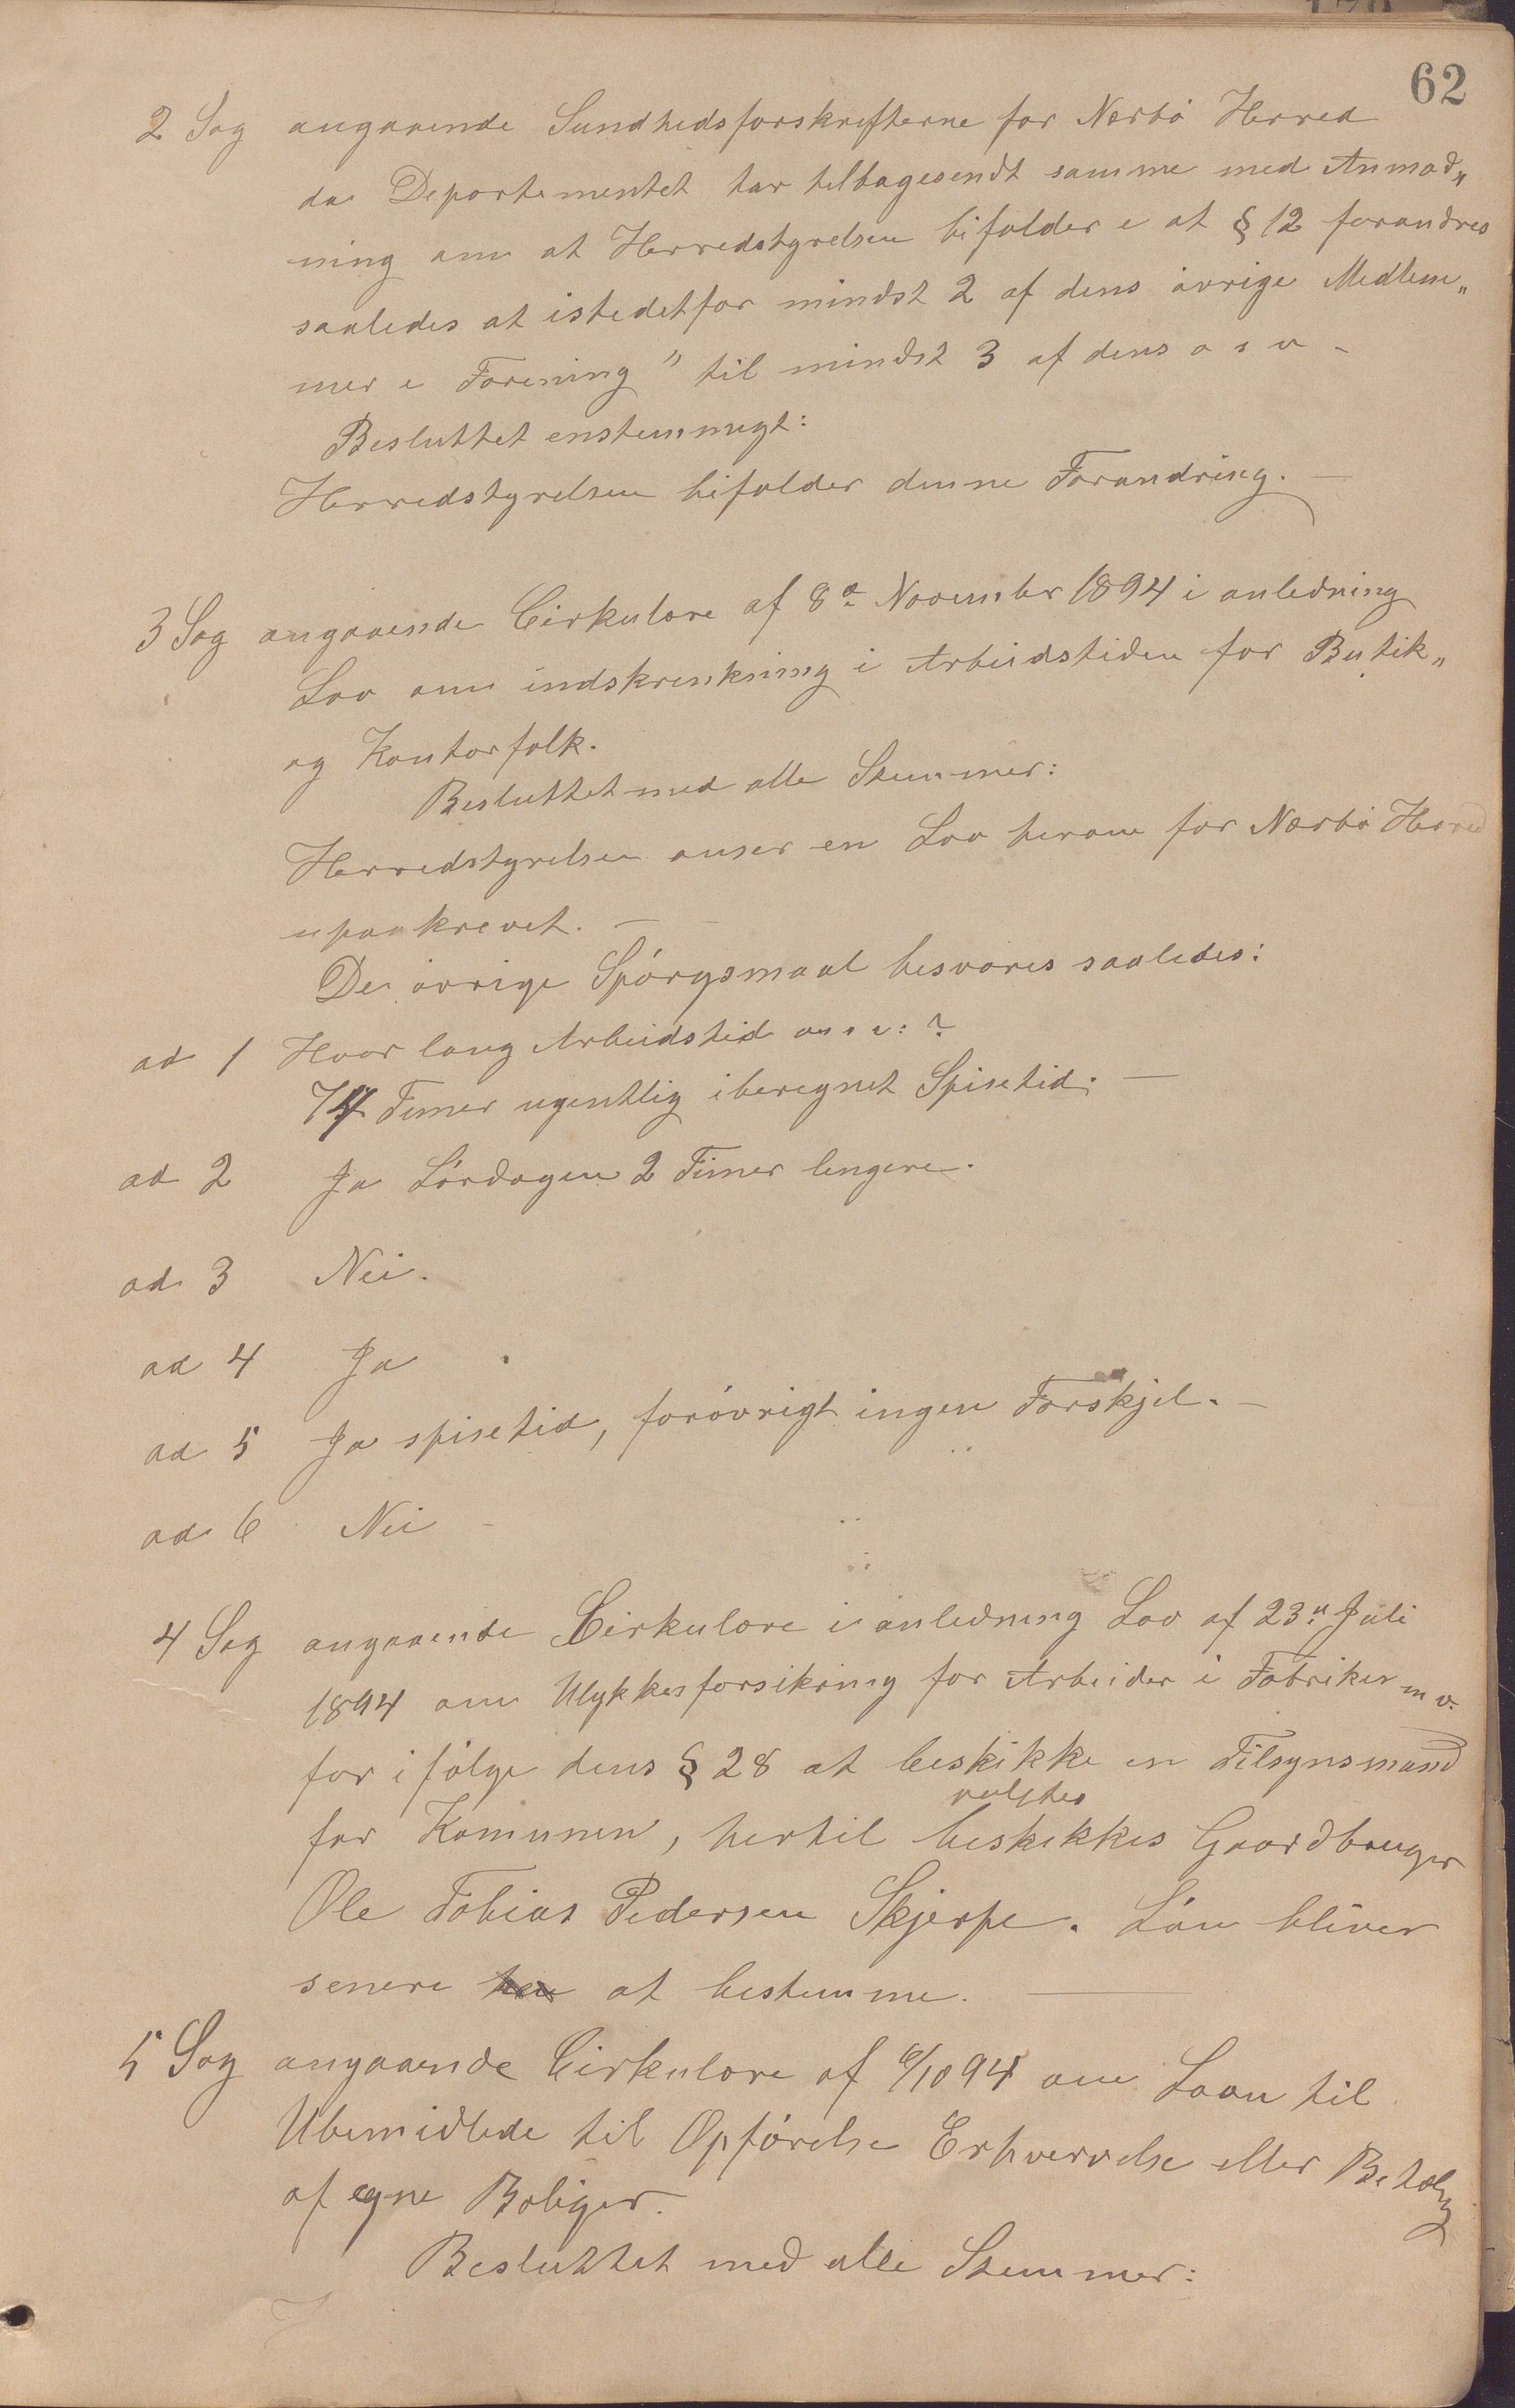 62
2 Sag angaaende Sundhedsforskrifterne for Nærbö Herred
da Departementet har tilbagesendt samme med Anmod„
ning om at Herredstyrelsen bifalder e at § 12 forandres
saaledes at istedetfor mindst 2 af dens övrige Medlem„
mer e Forening" til mindst 3 af dens o s v -
Besluttet enstemmigt:
Herredstyrelsen bifalder denne Forandring. —
3 Sag angaaende Cirkulære af 8de November 1894 i anledning
Lov om indskrenkning i Arbeidstiden for Butik„
og Kontorfolk.
Besluttet med alle Stemmer:
Herredstyrelsen anser en Lov herom for Nærbö Herred
upaakrevet. — —
De övrige Spörgsmaal besvares saaledes:
ad 1 Hvor lang Arbeidstid o s v: ?
74 Timer ugentlig iberegnet Spisetid. —
ad 2 Ja Lördagen 2 Timer lengere.
ad 3 Nei.
ad 4 Ja
ad 5 Ja spisetid, forövrigt ingen Forskjel. —
ad 6 Nei -
4 Sag angaaende Cirkulære i anledning Lov af 23de Juli
1894 om Ulykkesforsikring for Arbeider i Fabriker m v.
for i fölge dens § 28 at beskikke en Tilsynsmand
valgtes
for Komunen, hertil beskikkes Gaardbruger
Ole Tobias Pedersen Skjerpe. Lön bliver
senere at bestemme. —
5 Sag angaaende Cirkulære af 6/10 94 om Laan til
Ubemidlede til Opförelse Erhvervelse eller
af egne Boliger.
Besluttet med alle Stemmer: